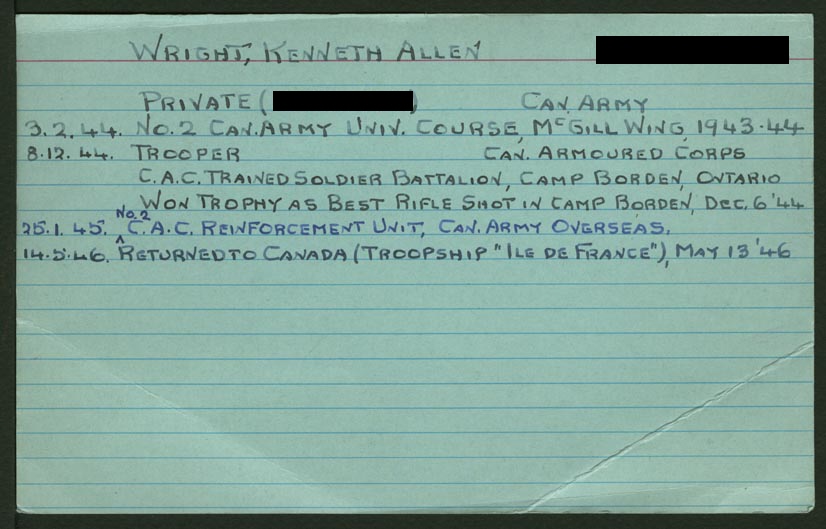 WRIGHT, KENNETH ALLEN
PRIVATE ( ) CAN. ARMY
3.2.44. NO.2 CAN. ARMY UNIV. COURSE, MCGILL WING, 1943-44
8.12.44. TROOPER CAN. ARMOURED CORPS
C.A.C. TRAINED SOLDIER BATTALION, CAMP BORDEN, ONTARIO
WON TROPHY AS BEST RIFLE SHOT IN CAMP BORDEN, DEC. 6 '44
25.1.45. No.2 C.A.C. REINFORCEMENT UNIT, CAN. ARMY OVERSEAS.
14.5.46. RETURNED TO CANADA (TROOPSHIP "ILE DE FRANCE"), MAY 13 '46